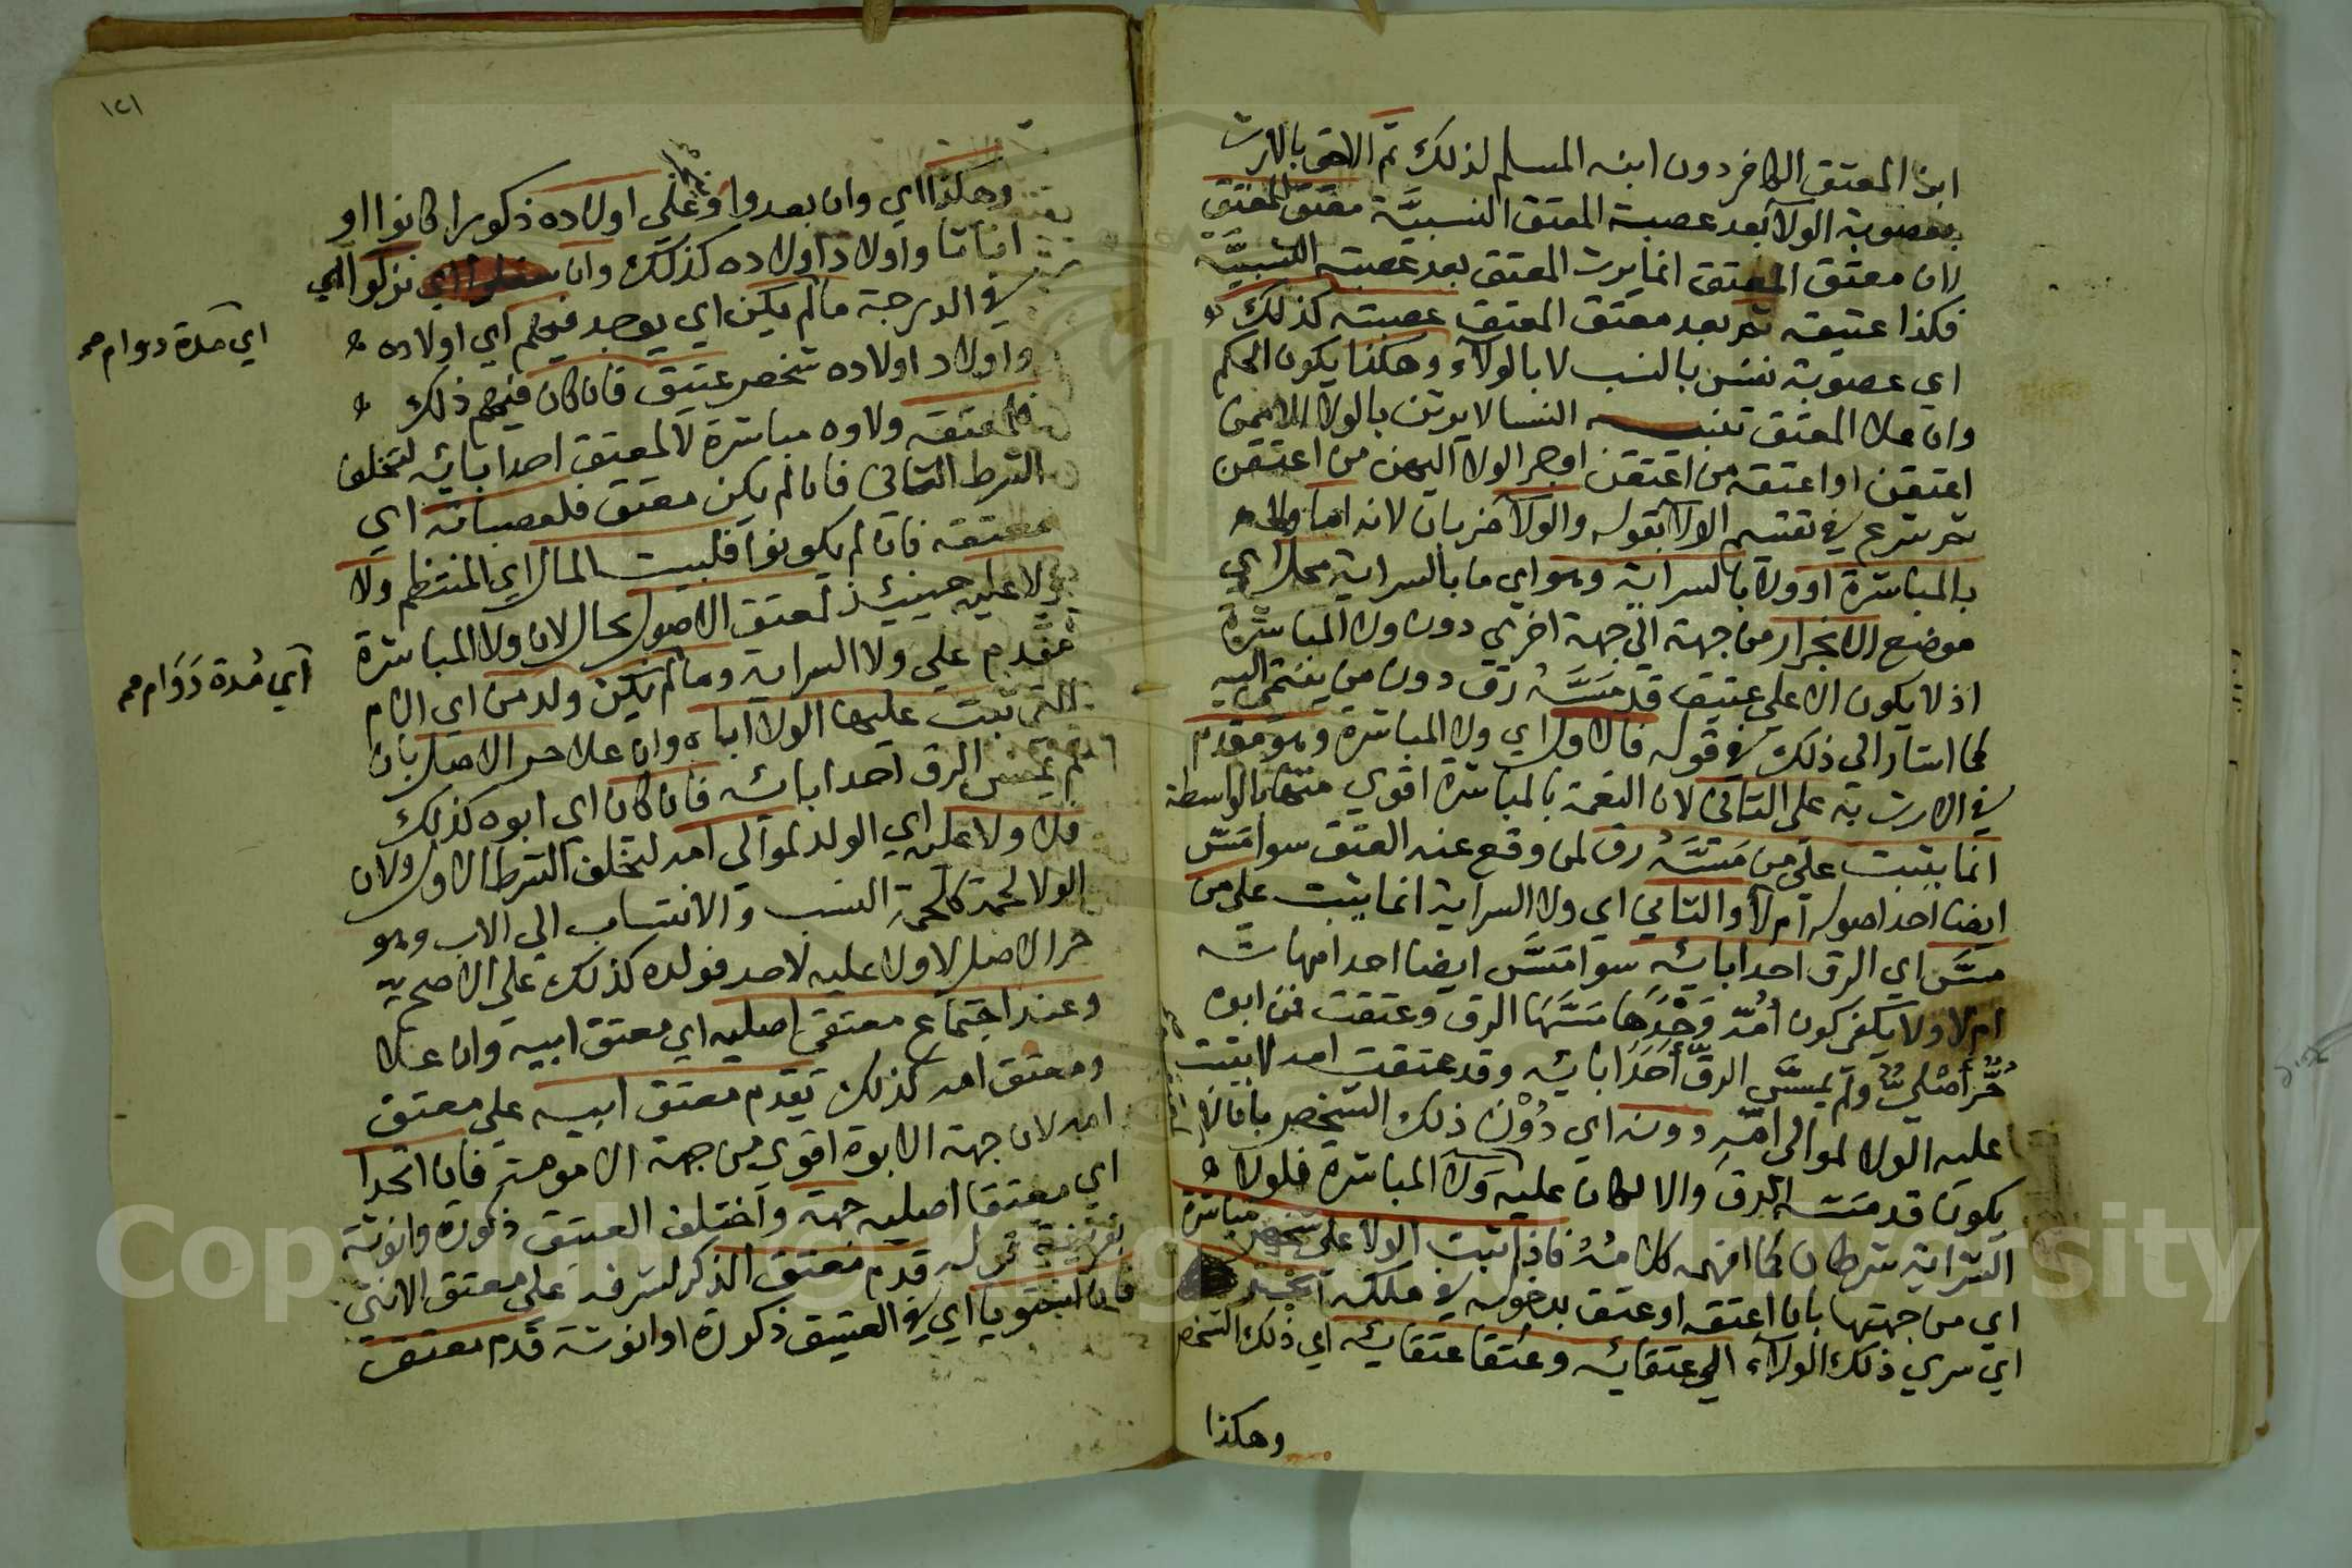 ابن المعتق الكافر دون ابنه المسلم لذلك ثم الاحق بالارث
بعصوبة الولآ بعد عصبة المعتق النسبيَّة معتق المعتق
لان معتق المعتق انما يرث المعتق بعد عصبته النسبيَّة
فكذا عتيقه ثم بعد معتق المعتق عصبته كذلك
اي عصوبة نفس بالنسب لا بالولآء وهكذا يكون الحكم
وان علا المعتق تنبيـــه النسا لا يرثن بالولا الا ممن
اعتقن او اعتقه من اعتقن او جر الولا اليهن من اعتقن
ثم شرع في تقسيم الولآ بقوله والولآ ضربان لانه اما ولا
بالمباشرة او ولا بالسراية وهو اي ما بالسراية محل اي
موضع الانجرار من جهة الي جهة اخري دون ولا المباشرة
اذ لا يكون الا علي عتيق قد مَسَّهُ رق دون من ينتمي اليه
كما اشار الي ذلك في قوله فالاول اي ولا المباشرة وهو مقدم
في الارث به علي الثاني لان النعمة بالمباشرة اقوي منها بالواسطة
انما يثبت علي من مَسَّهُ رق لمن وقع عنه العتق سوا مَسّ
ايضا احد اصوله ام لا والثاني اي ولا السراية انما يثبت علي من
مسَّ اي الرق احد ابائه سوا مَسَّ ايضا احد امهاته
ام لا ولا يكفي كون اُمّه وَحْدَها مَسَّهَا الرق وعتقت فمن ابوه
حُرٌّ أصْليٌّ ولم يمسَّ الرقّ أَحَدَ ابائه وقد عتقت امه لا يثبت
عليه الولا لموالي امّه دونه اي دُوْنَ ذلك الشخص بان لا
يكون قد مسه الرق والا لكان عليه وَلا المباشرة فلولا
السّراية شرطان كما افهمه كلامُهُ فاذا ثبت الولا علي شخص مباشرة
اي من جهتها بان اعتقه او عتق بدخوله في ملكه انجرّ
اي سري ذلك الولآء الي عتقائه وعُتقا عتقائه اي ذلك الشخص
وهكذا
١٢١
وهكذا اي وان بعدوا وعلي اولاده ذكورا كانوا او
اناثا واولاد اولاده كذلك وان نزلوا اي
في الدرجة ما لم يكن اي يوجد فيهم اي اولاده
واولاد اولاده شخص عتيق فان كان فيهم ذلك
فلمعتقه ولاوه مباشرة لا لمعتق احد ابائه لتخلف
الشرط الثاني فان لم يكن معتق فلعصباته اي
معتقه فان لم يكونوا فلبيت المال اي المنتظم ولا
ولا عليه حينئذ لمعتق الاصول بحال لان ولا المباشرة
مقدم علي ولا السراية وما لم يكن ولد من اي الام
التي ثبت عليها الولآ اباه وان علا حر الاصل بان
لم يمس الرق احد ابائه فان كان اي ابوه كذلك
فلا ولا عليه اي الولد لموالي امه لتخلف الشرط الاول ولان
الولا لحمة كلحمة النسب والانتساب الي الاب وهو
حر الاصل لا ولا عليه لاحد فولده كذلك علي الاصح
وعند اجتماع معتقي اصليه اي معتق ابيه وان علا
ومعتق امه كذلك يقدم معتق ابيه علي معتق
امه لان جهة الابوة اقوي من جهة الامومة فان اتحدا
اي معتقا اصليه جهة واختلف العتيق ذكورة وانوثة
بقرينة قوله قدم معتق الذكر لشرفه علي معتق الانثي
فان استويا اي في العتيق ذكورة او انوثة قدم معتق
اي مدة دوام
آي مُدة دَوَام